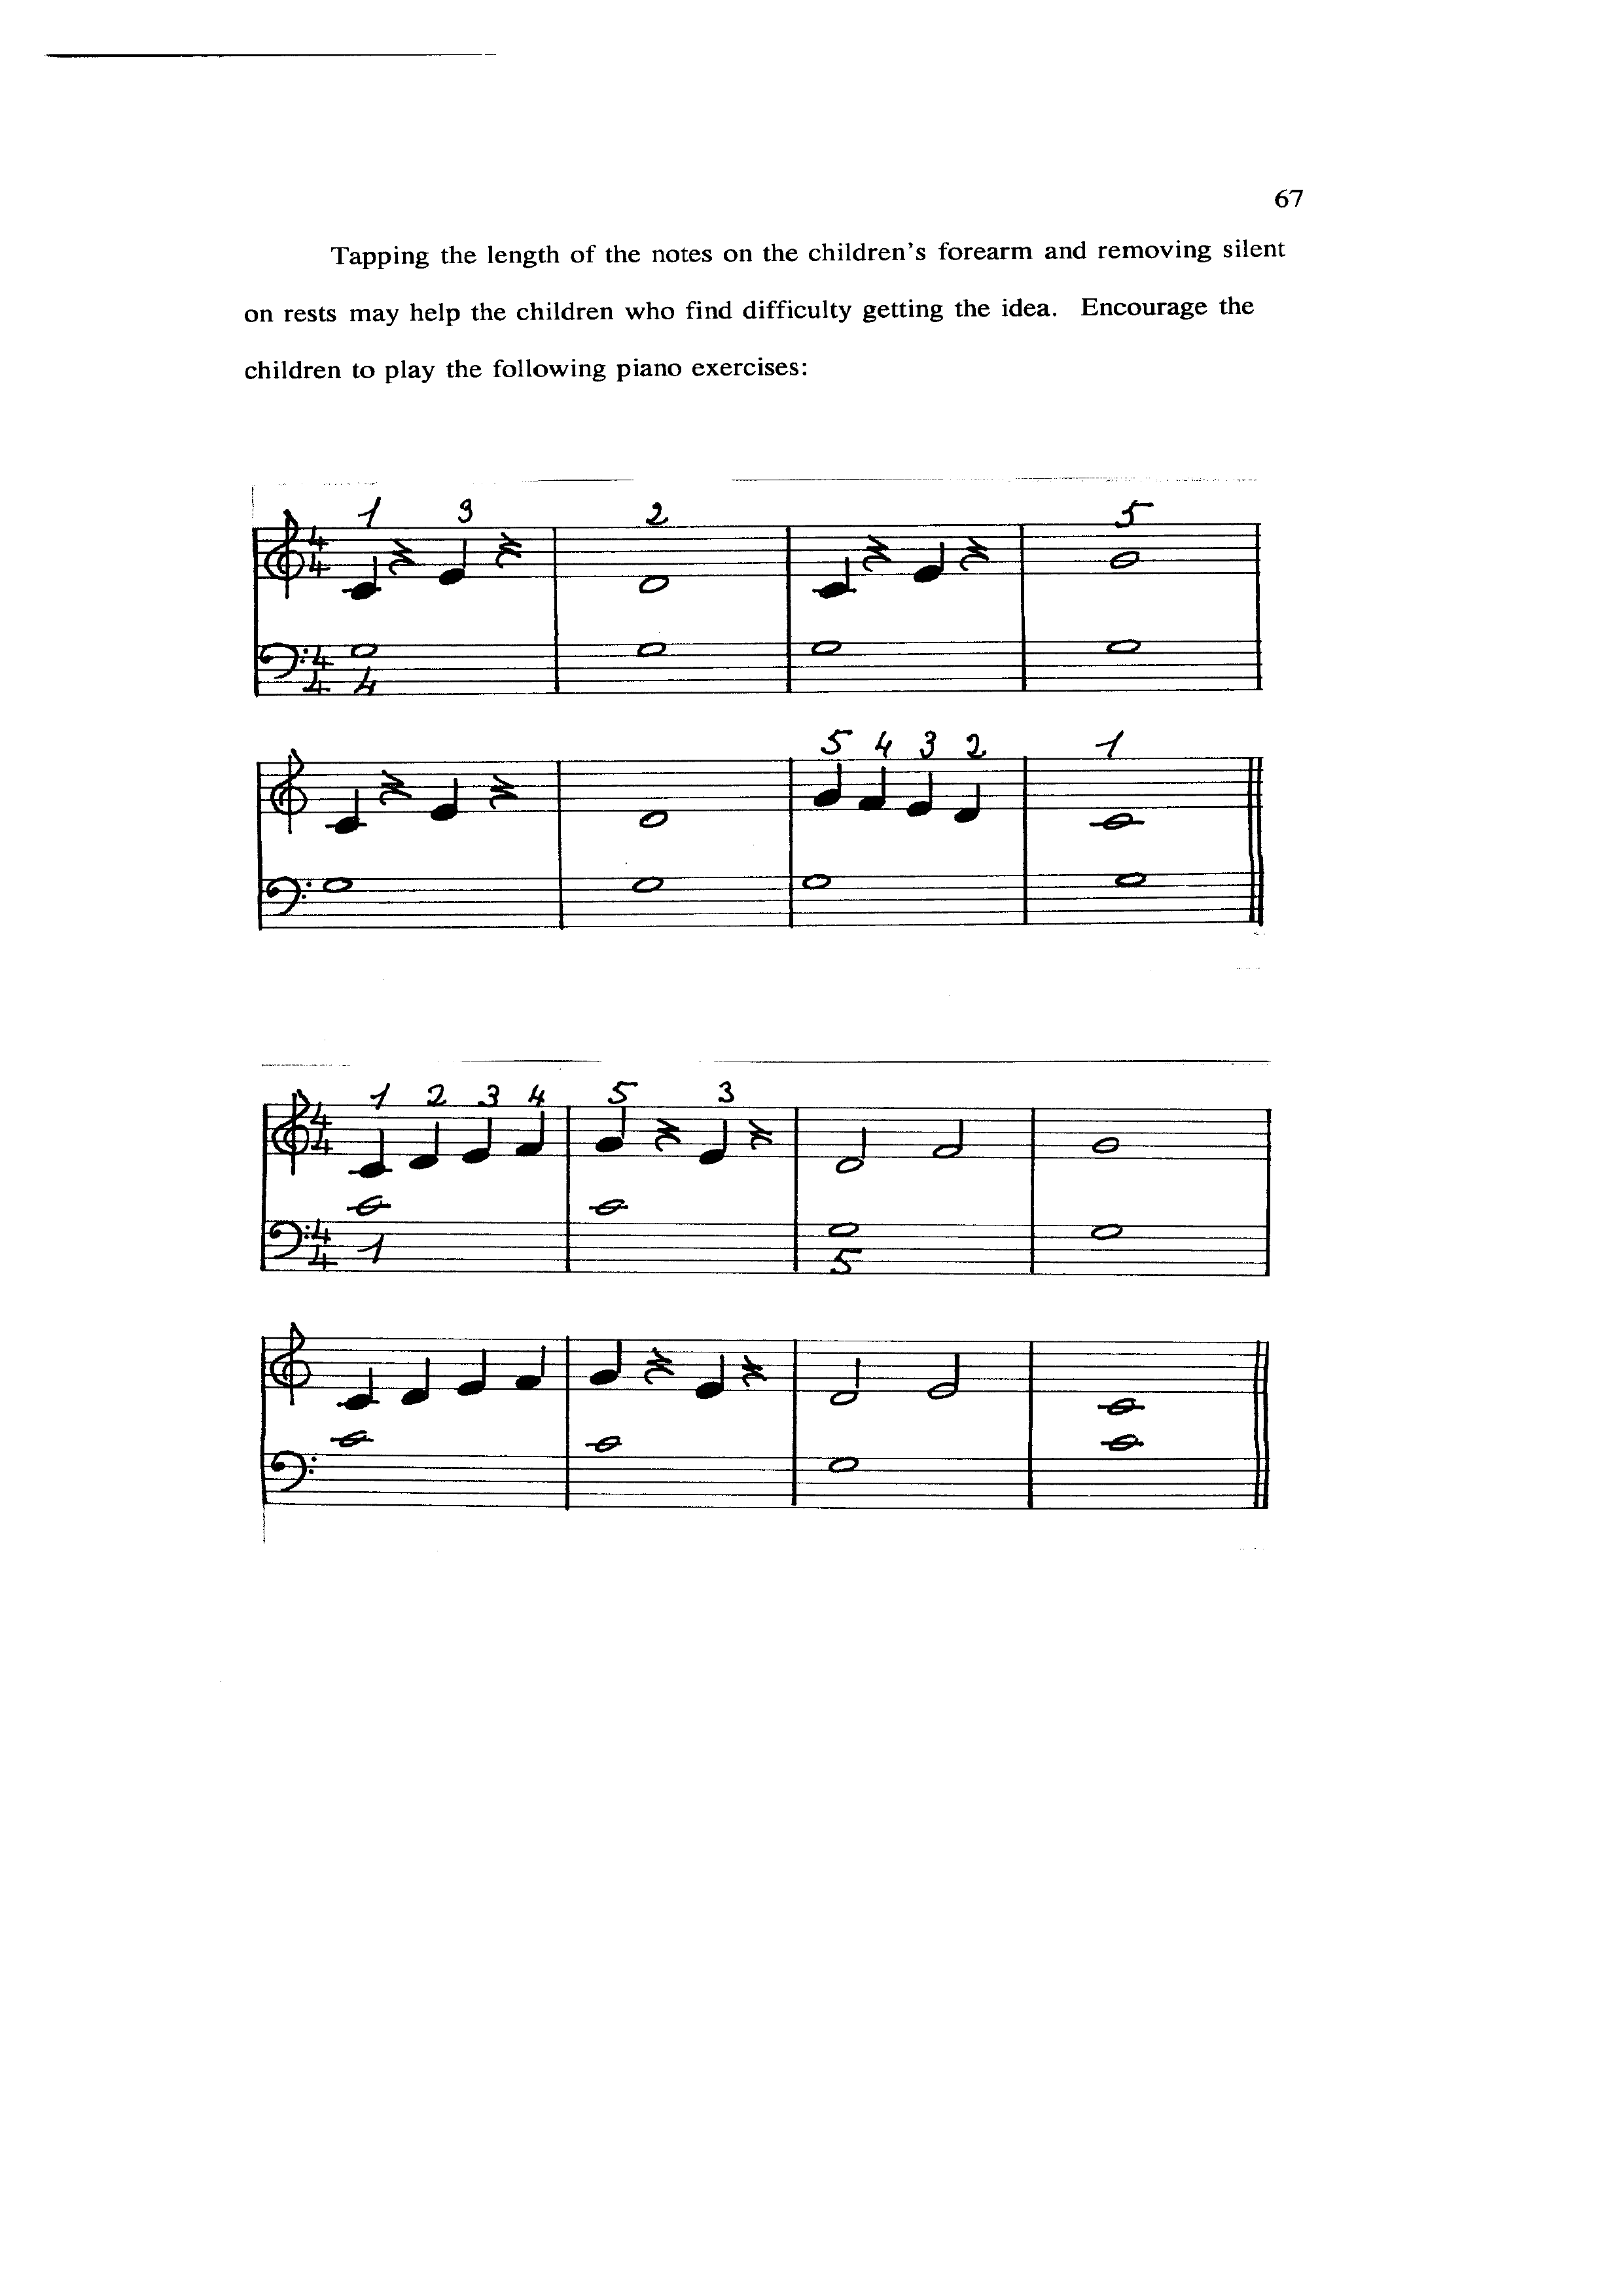 67
Tapping the length of the notes on the children's forearm and removing silent
on rests may help the children who find difficulty getting the idea. Encourage the
children to play the following piano exercises:
1 3 2 5
4
4
4
4 4
5 4 3 2 1
1 2 3 4 5 3
4
4
4
4 1 5